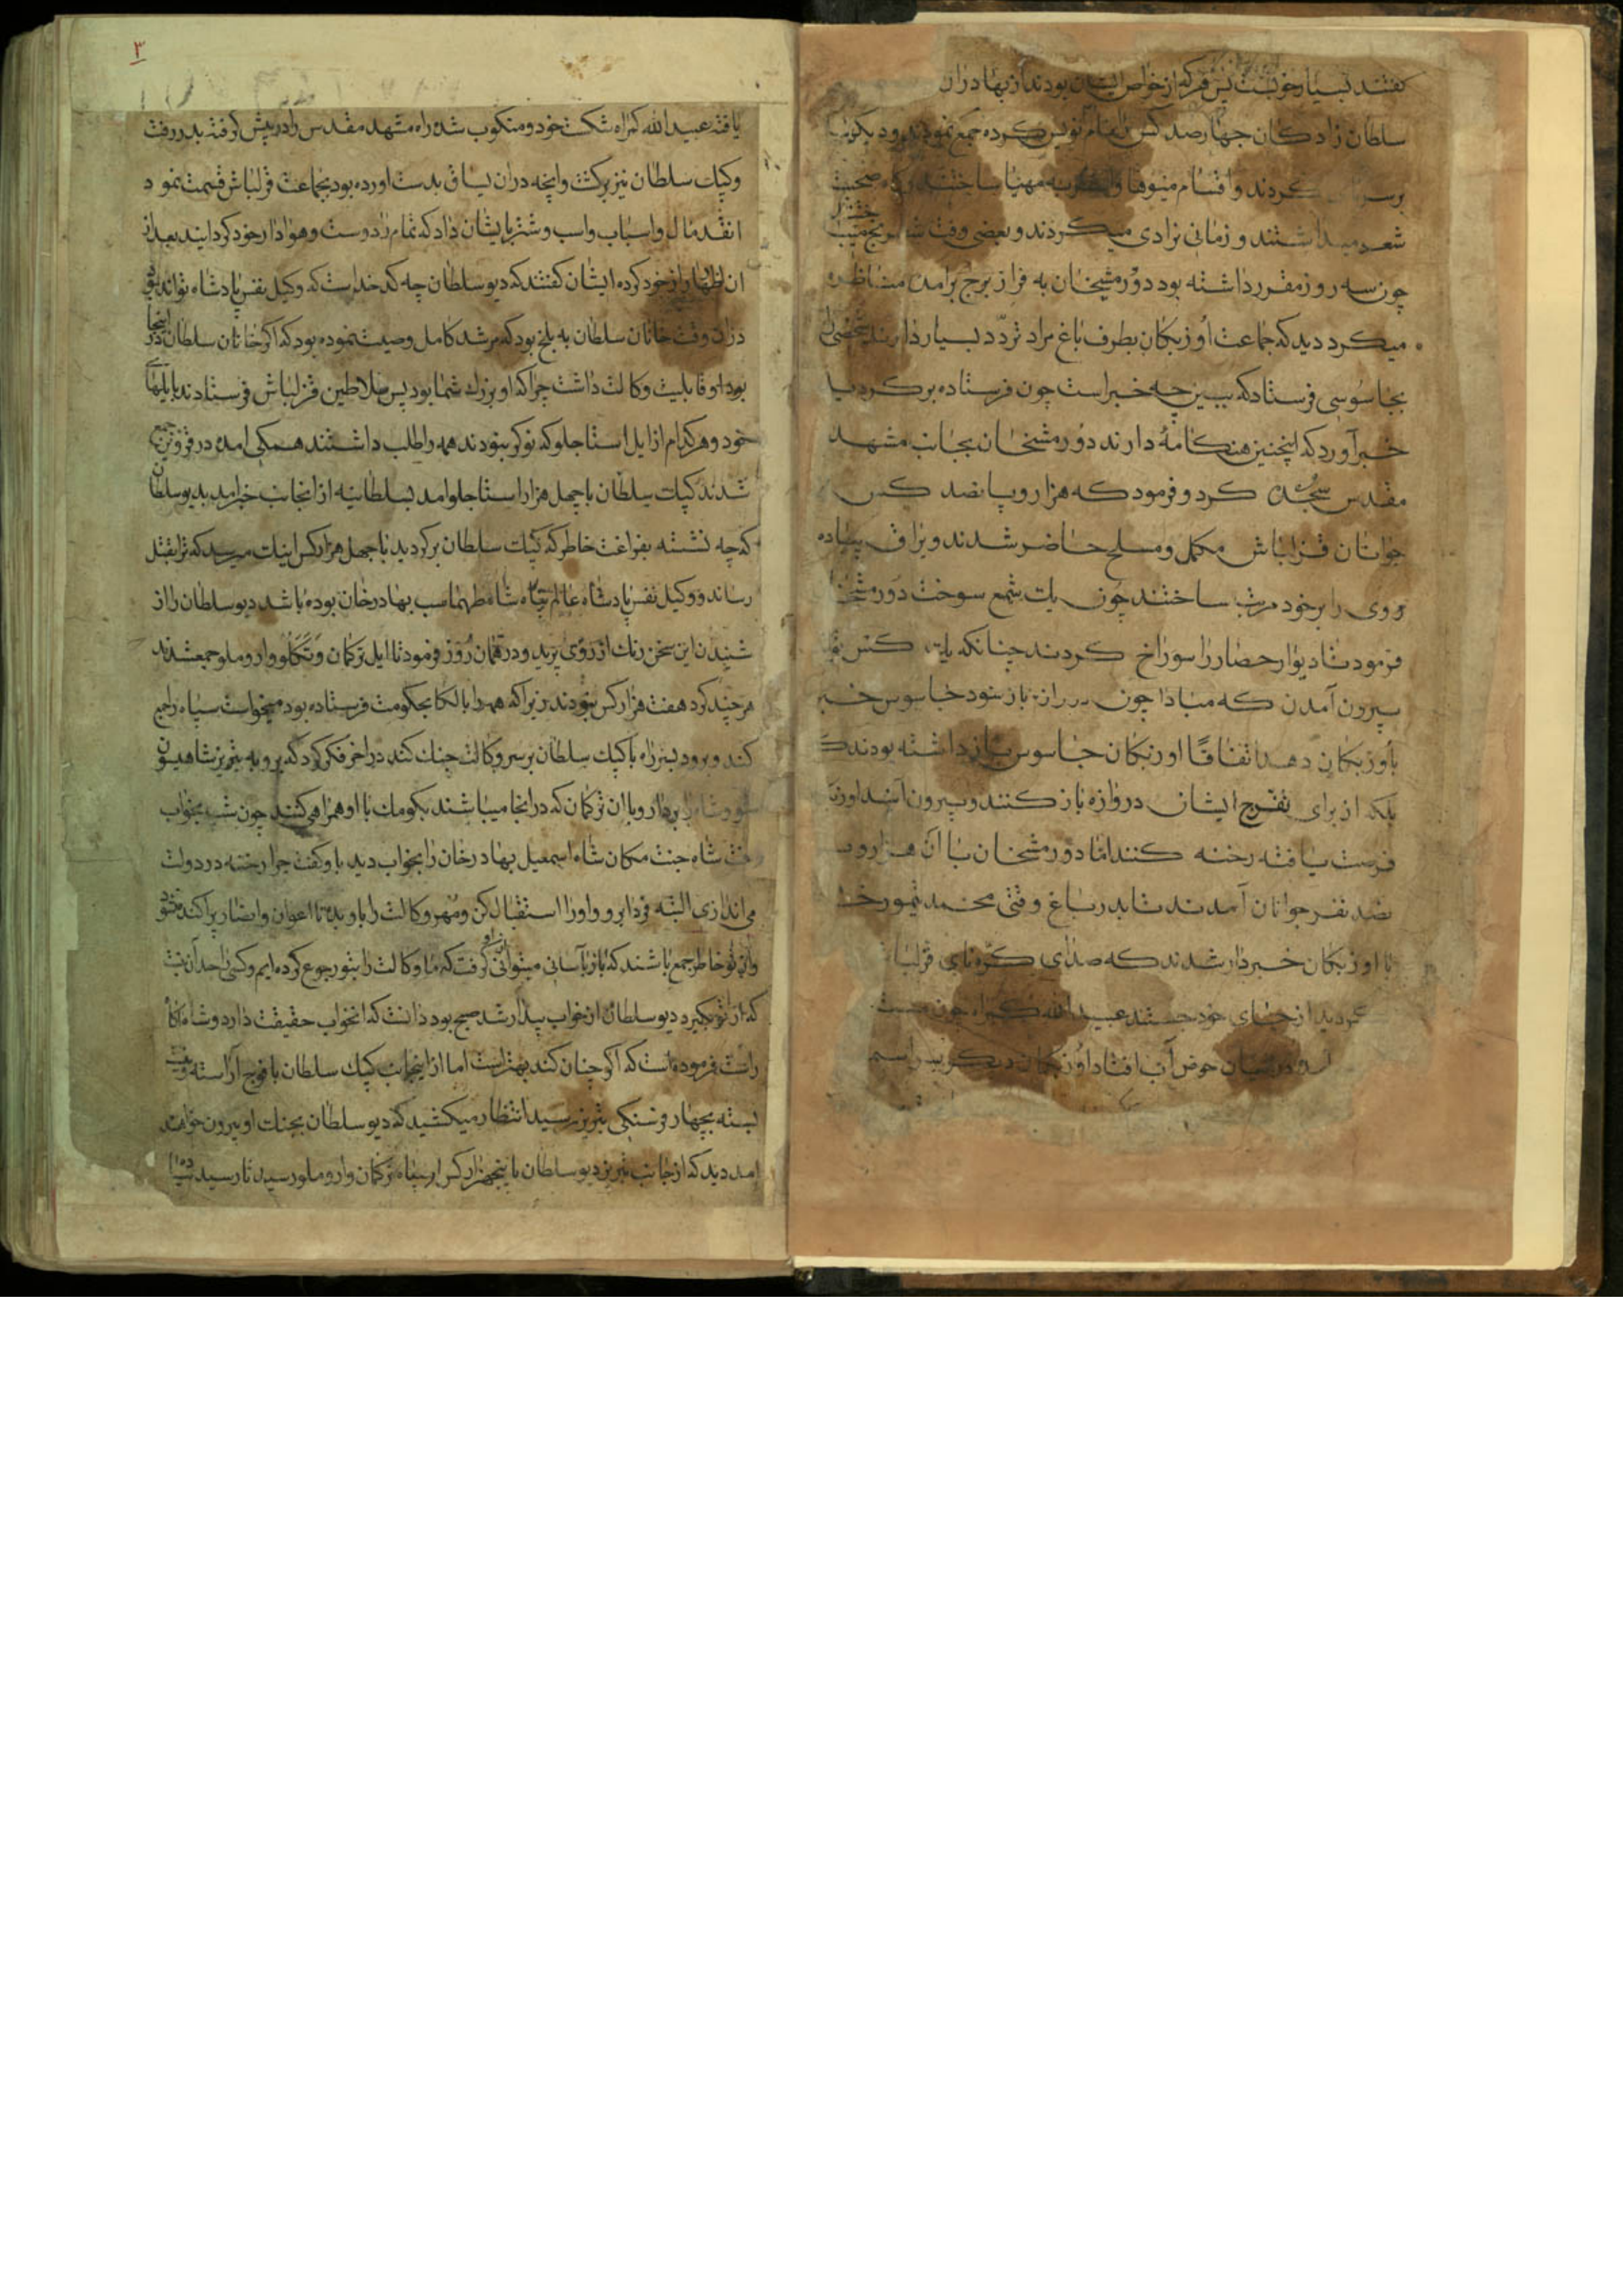 کفتند بسیار خوبست پس هر که از خواص ایشان بودند از بهادران
سلطان زادکان چهارصد کس را تمام نویس کرده جمع نمودند و
کردند و اقسام میوها و مهیا ساختند صحبت
شعر میداشتند و زمانی نرادی میکردند و بعضی وقت شطرنج
چون سه روز مقرر داشته بود دورمشخان به فراز برج برآمده مشاظره
میکرد دید که جماعت اوزبکان بطرف باغ مراد تردد بسیار دارند شخصی را
بجاسوسی فرستاد که ببین چه خبر است چون فرستاده برکردید
خبر آورد که اینچنین هنکامهٔ دارند دورمشخان بجانب مشهد
مقدس سجده کرد و فرمود که هزار و پانصد کس
جوانان قزلباش مکمل و مسلح حاضر شدند و یراق پیاده
روی را بر خود مرتب ساختند چون یک شمع سوخت دورمشخان
فرمود تا دیوار حصار را سوراخ کردند چنانکه یک کس
بیرون آمدن که مبادا چون دروازه باز شود جاسوس خبر
باوزبکان دهد اتفاقا اوزبکان جاسوس باز داشته بودند که
بلکه از برای تفرج ایشان دروازه باز کنند و بیرون آیند
فرصت یافته رخنه کنند اما دورمشخان با آن هزار و
پانصد نفر جوانان آمدند تا بدر باغ وقتی محمد تیمورخان
با اوزبکان خبردار شدند که صدای کره نای قزلباش
از جای خود جستند عبیدالله کمراه چون
در میان حوض آب افتاد اوزبکان دیکر
۳
یافته عبیدالله کمراه شکست خود و منکوب شده راه مشهد مقدس را در پیش کرفته بدر رفت
و کپک سلطان نیز برکشت و آنچه در ان یساق بدست اورده بود بجماعت قزلباش قسمت نمود
انقدر مال و اسباب و اسب و شتر بایشان داد که تمام را دوست و هوادار خود کردانید بعد از
ان اظهار راز خود کرده ایشان کفتند که دیو سلطان چه کد خداست که وکیل نفس پادشاه تواند بود
در ان وقت خانان سلطان به بلخ بود که مرشد کامل وصیت نموده بود که اکر خانان سلطان در اینجا
بود او قابلیت وکالت داشت چرا که او بزرک شما بود پس سلاطین قزلباش فرستادند بایلهای
خود و هر کدام از ایل استاجلو که نوکر نبودند همه را طلب داشتند همکی امده در قزوین جمع
شدند کپک سلطان با چهل هزار استاجلو امد بسلطانیه از انجانب خبر امد بدیو سلطان
که چه نشسته بفراغت خاطر که کپک سلطان برکردید با چهل هزار کس اینک میرسد که ترا بقتل
رساند و وکیل نفس پادشاه عالم پناه شاه طهماسب بهادرخان بوده باشد دیو سلطان را از
شنیدن این سخن رنک از روی پرید و در همان روز فرمود تا ایل ترکمان و تکلو و اروملو جمع شدند
هر چند کرد هفت هزار کس نبودند زیرا که همه را بالکا بحکومت فرستاده بود میخواست سپاه را جمع
کند و برود بسر راه با کپک سلطان بر سر وکالت جنک کند در اخر فکر کرد که برو به تبریز شاهیسون
شو و شاه را بردار و با ان ترکمان که در انجا میباشند بکومک با او همراهی کنند چون شب بخواب
رفت شاه جنت مکان شاه اسمعیل بهادرخان را بخواب دید باو کفت چرا رخنه در دولت
می اندازی البته فردا برو و او را استقبال کن و مهر وکالت را باو بده تا اعوان و انصار پراکنده شود
و از تو خاطر جمع باشند که باز بآسانی میتوانی از او کرفت که ما وکالت را بتو رجوع کرده ایم و کسی را حد آن نیست
که از تو بکیرد دیو سلطان از خواب بیدار شد صبح بود دانست که انخواب حقیقت دارد و شاه
راست فرموده است که اکر چنان کند بهتر است اما از اینجانب کپک سلطان با فوج آراسته
بسته بچهار فرسنکی تبریز رسید انتظار میکشید که دیو سلطان بجنک او بیرون خواهد
امد دید که از جانب تبریز دیو سلطان با پنجهزار کس از سپاه ترکمان و اروملو رسید تا رسیدن